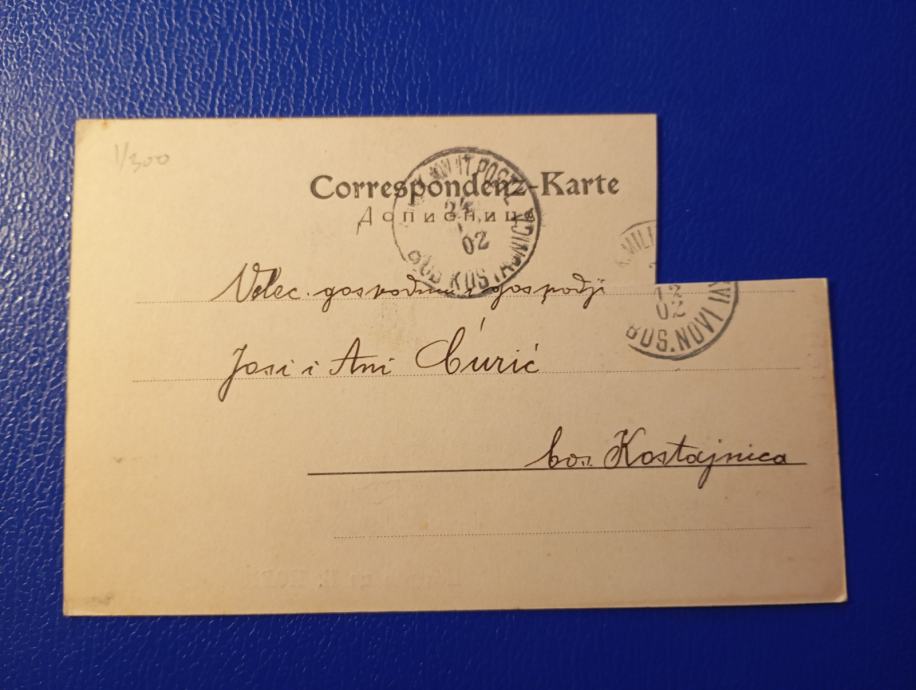 1/300
Correspondenz-Karte
Дописница
MILIT. POST
24
02
BOS. KOSTAJNICA
K. MILI
12
02
BOS. NOVI
Veleč. gospodinu i gospodji
Josi i Ani Ćurić
bos. Kostajnica